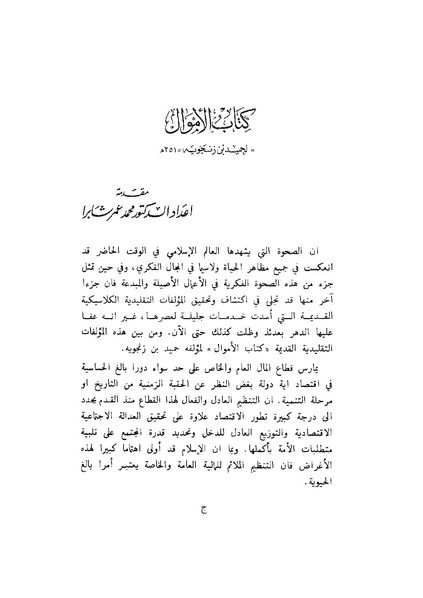 كتاب الأموال
« لحميد بن زنجويه » ٢٥١هـ
مقدمة
اعداد الدكتور محمد عمر شابرا
ان الصحوة التي يشهدها العالم الإسلامي في الوقت الحاضر قد
انعكست في جميع مظاهر الحياة ولاسيما في المجال الفكري، وفي حين تمثل
جزء من هذه الصحوة الفكرية في الأعمال الأصيلة والمبدعة فان جزءا
آخر منها قد تجلى في اكتشاف وتحقيق المؤلفات التقليدية الكلاسيكية
القديمة التي أسدت خدمات جليلة لعصرها، غير انه عفا
عليها الدهر بعدئذ وظلت كذلك حتى الآن. ومن بين هذه المؤلفات
التقليدية القديمة «كتاب الأموال» لمؤلفه حميد بن زنجويه.
يمارس قطاع المال العام والخاص على حد سواء دورا بالغ الحساسية
في اقتصاد اية دولة بغض النظر عن الحقبة الزمنية من التاريخ او
مرحلة التنمية. ان التنظيم العادل والفعال لهذا القطاع منذ القدم يحدد
الى درجة كبيرة تطور الاقتصاد علاوة على تحقيق العدالة الاجتماعية
الاقتصادية والتوزيع العادل للدخل وتحديد قدرة المجتمع على تلبية
متطلبات الأمة بأكملها. وبما ان الإسلام قد أولى اهتماما كبيرا لهذه
الأغراض فان التنظيم الملائم للمالية العامة والخاصة يعتبر أمرا بالغ
الحيوية.
ج